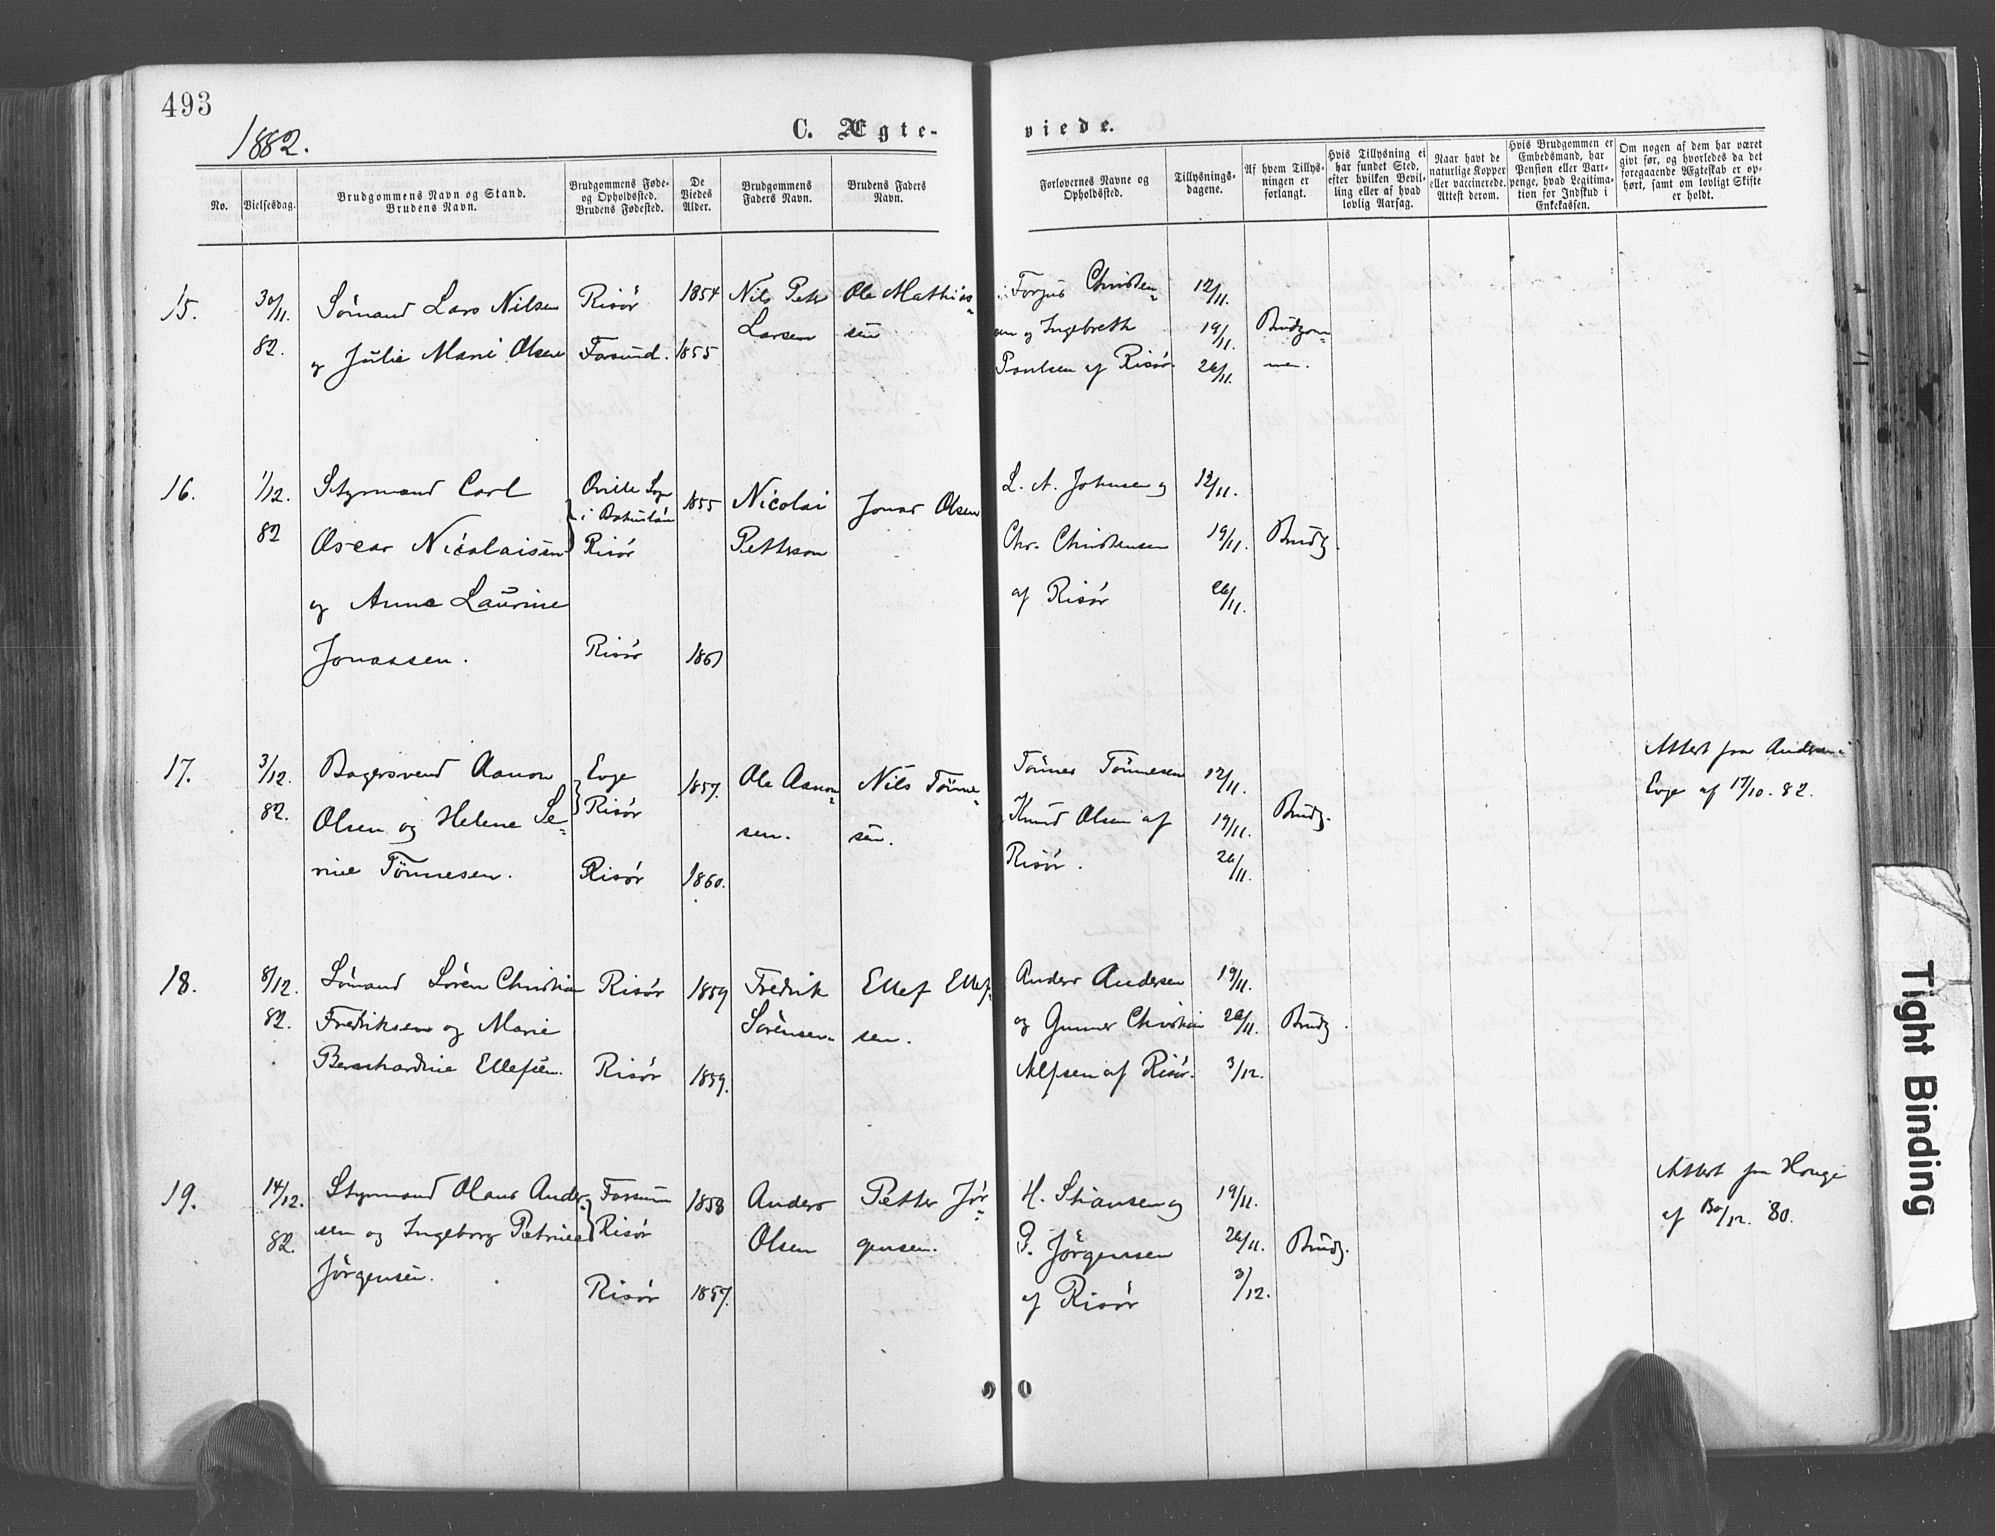 493
1882.
C. Ægte-
viede.
No.
Vielsesdag.
Brudgommens Navn og Stand.
Brudens Navn.
Brudgommens Føde-
og Opholdssted.
Brudens Fødested.
De
Viedes
Alder.
Brudgommens
Faders Navn.
Brudens Faders
Navn.
Forlovernes Navne og
Opholdssted.
Tillysnings-
dagene.
Af hvem Tillys-
ningen er
forlangt.
Hvis Tillysning ei
har fundet Sted,
efter hvilken Bevil-
ling eller af hvad
lovlig Aarsag.
Naar havt de
naturlige Kopper
eller vaccinerede.
Attest derom.
Hvis Brudgommen er
Embedsmand, har
Pension eller Vart-
penge, hvad Legitima-
tion for Indskud i
Enkekassen.
Om nogen af dem har været
givt før, og hvorledes da det
foregaaende Ægteskab er op-
hørt, samt om lovligt Skifte
er holdt.
15.
30/11.
82.
Sømand Lars Nilsen
og Julie Marie Olsen
Risør
Forsund.
1854
1855
Nils Peter
Larsen
Ole Mathias-
sen
Torjus Christen-
sen og Ingebreth
Paulsen af Risør.
12/11.
19/11.
26/11.
Brudgom-
men.
16.
1/12.
82
Styrmand Carl
Oscar Nicolaisen
og Anna Laurine
Jonassen.
Sogn
i Bohuslän
Risør
Risør
1855
1861
Nicolai
Petterson
Jonas Olsen
L. A. Johnsen og
Chr. Christensen
af Risør
12/11.
19/11.
26/11.
Brudg.
17.
3/12.
82.
Bagersvend Aanon
Olsen og Helene Se-
rine Tönnesen.
Evje
Risør
Risør
1857.
1860.
Ole Aanon-
sen.
Nils Tönne-
sen.
Tönnes Tönnesen
og Knud Olsen af
Risør.
12/11.
19/11.
26/11.
Brudg.
Attest fra
Evje af 17/10. 82.
18.
8/12.
82.
Sømand Sören Christian
Fredriksen og Marie
Bernhardine Ellefsen.
Risør
Risør
1859
1859.
Fredrik
Sörensen.
Ellef Ellef-
sen.
Anders Andersen
og Gunner Christian
Alfsen af Risør.
19/11.
26/11.
3/12.
Brudg.
19.
14/12.
82.
Styrmand Olaus Ander-
sen og Ingeborg Petrine
Jörgensen.
Forsund
Risør
Risør
1858
1857.
Anders
Olsen
Petter Jör-
gensen.
H. Stiansen og
P. Jörgensen
af Risør
19/11.
26/11.
3/12.
Brudg.
Attest fra
af 30/12. 80.
Tight Binding